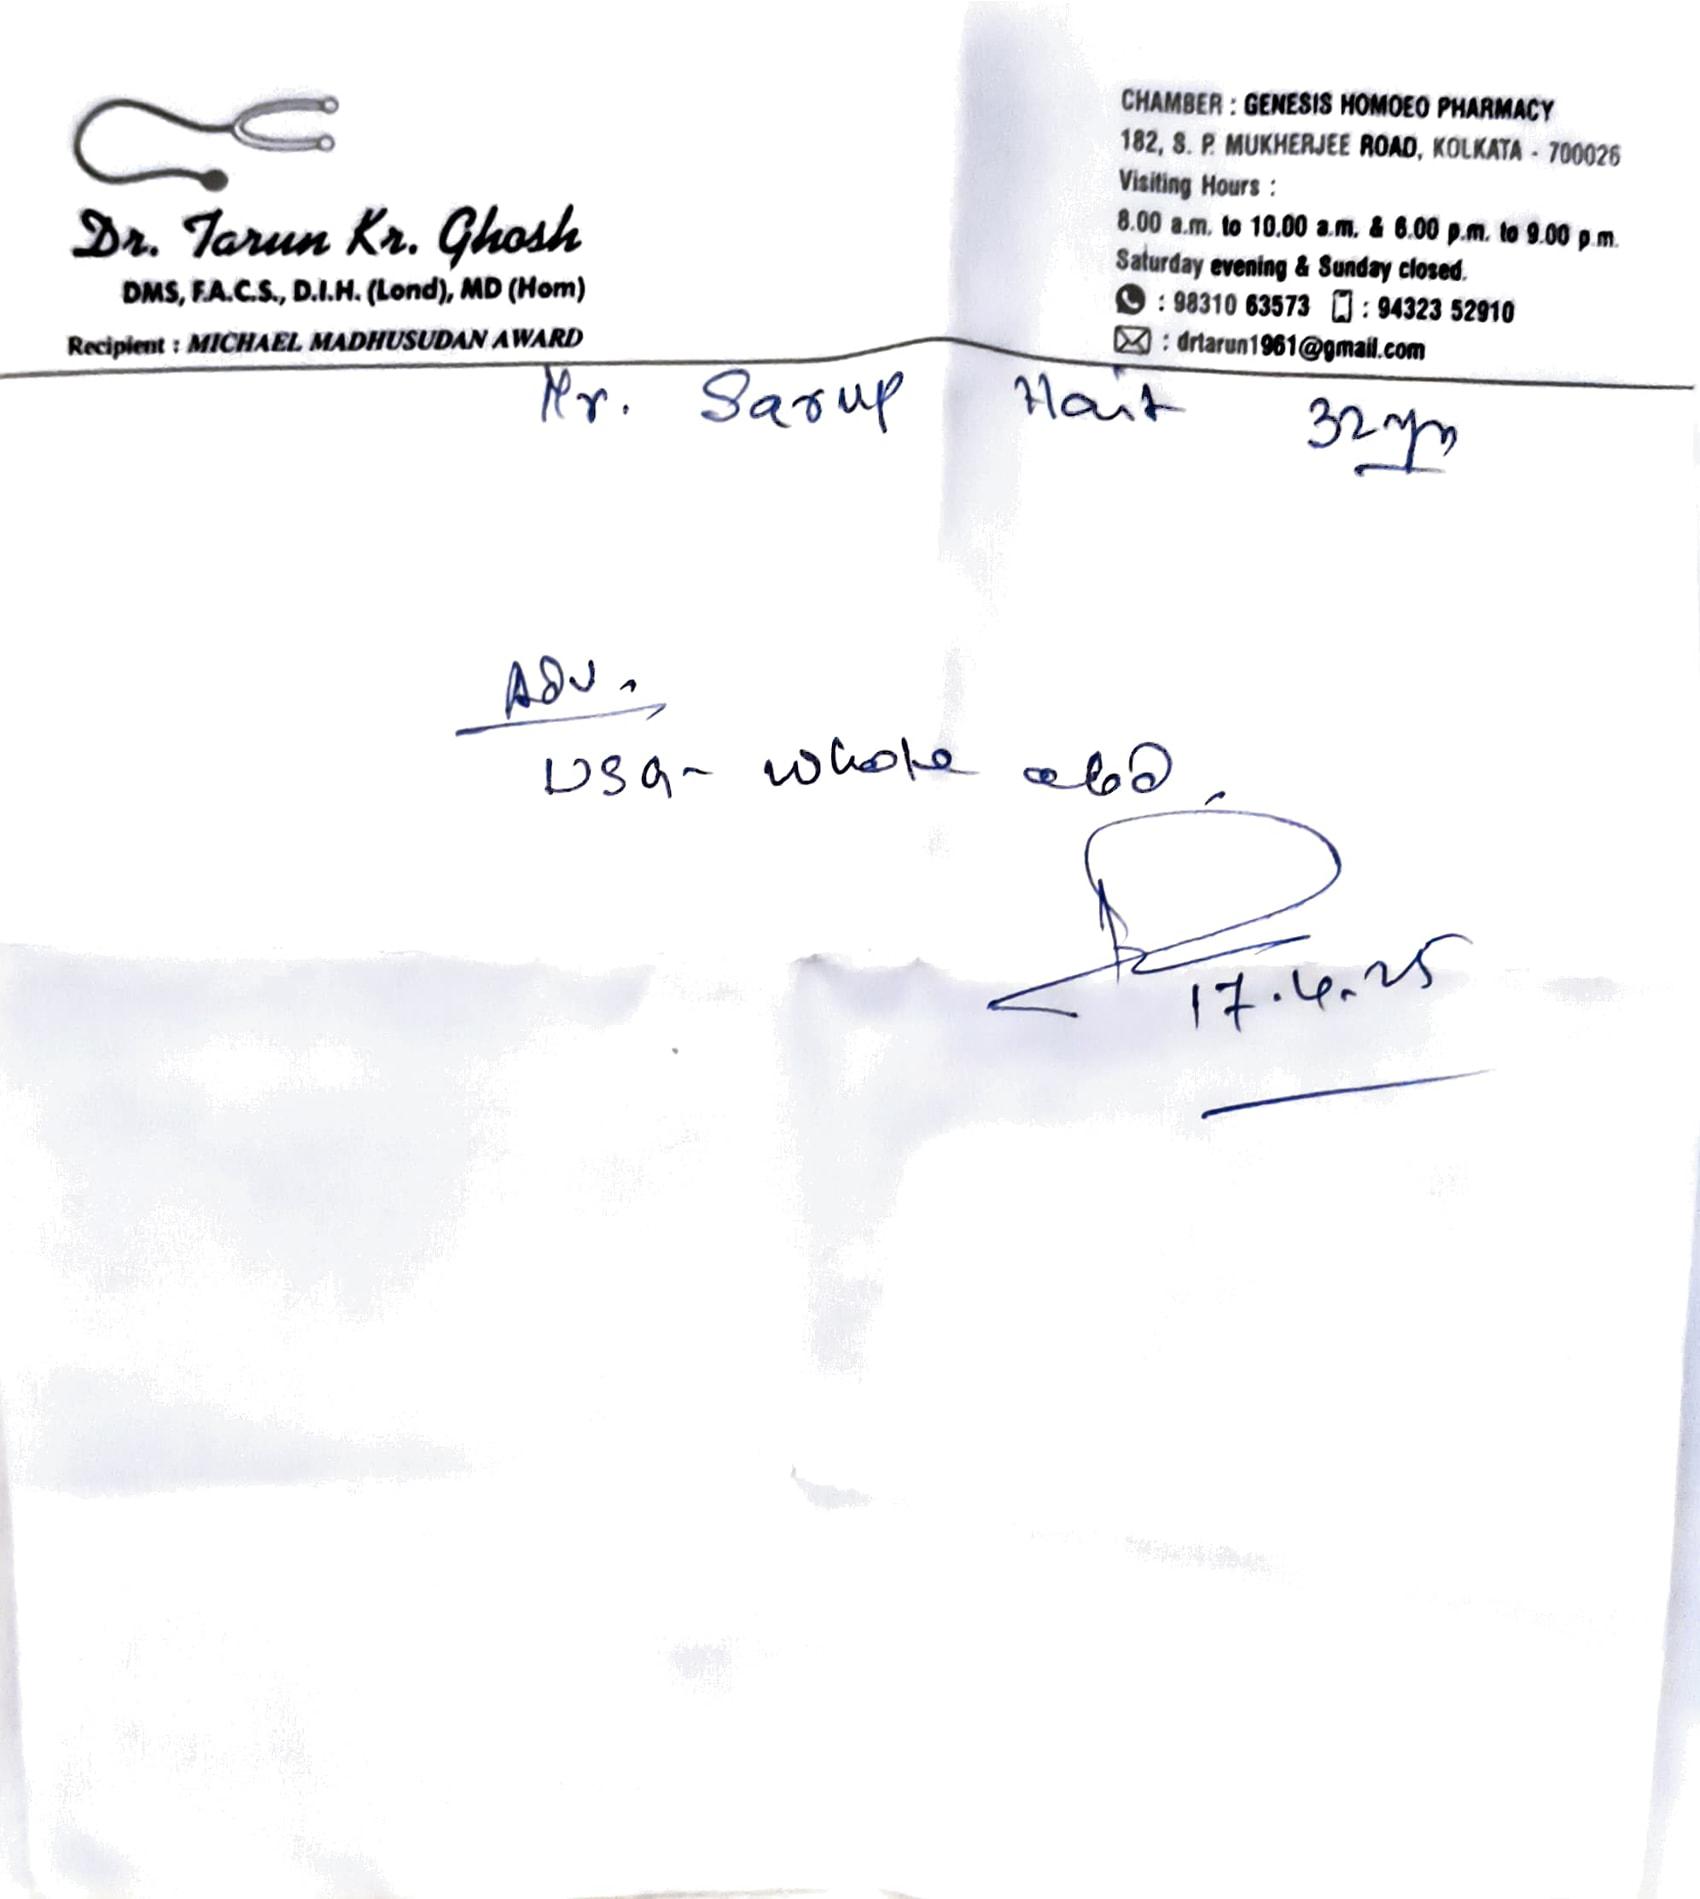 Dr. Tarun Kr. Ghosh
DMS, F.A.C.S., D.I.H. (Lond), MD (Hom)
Recipient : MICHAEL MADHUSUDAN AWARD
CHAMBER : GENESIS HOMOEO PHARMACY
182, S. P. MUKHERJEE ROAD, KOLKATA - 700026
Visiting Hours :
8.00 a.m. to 10.00 a.m. & 6.00 p.m. to 9.00 p.m.
Saturday evening & Sunday closed.
: 98310 63573 : 94323 52910
: drtarun1961@gmail.com
Mr. Sarup Hait 32 yrs
Adv.
USG- whole abd.
17.4.25